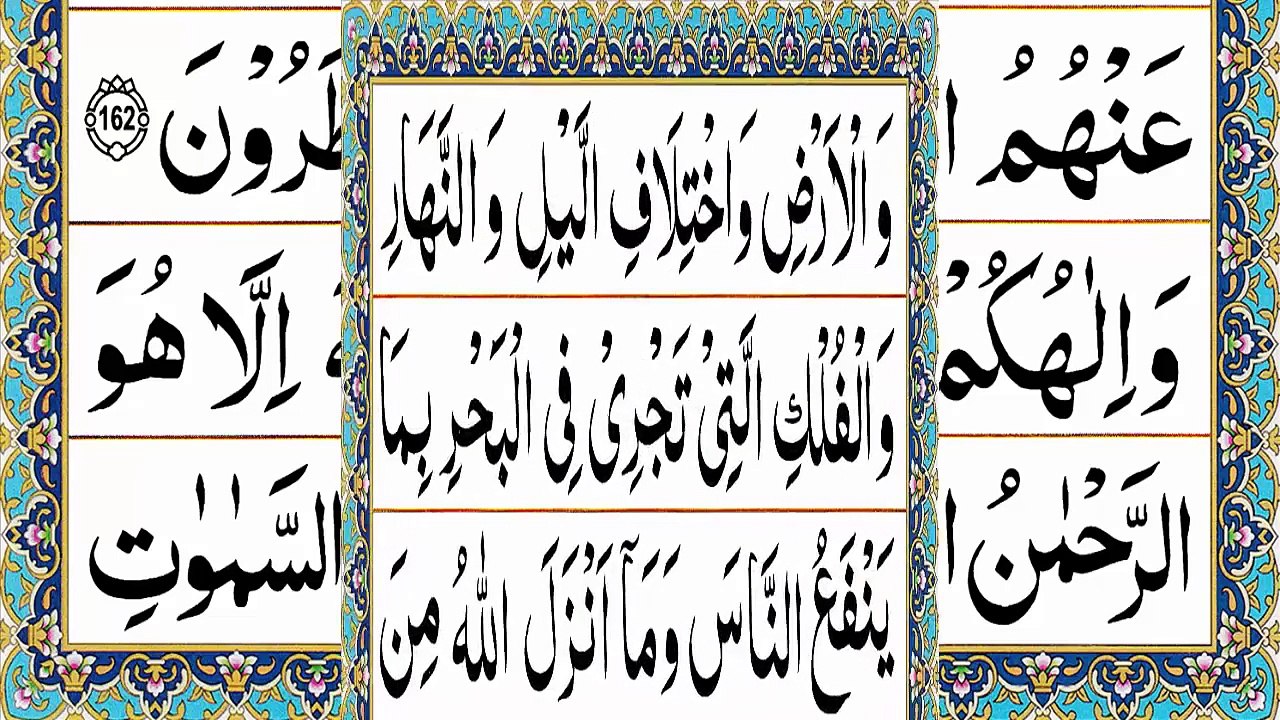 عَنْهُمُ ا
طَرُوْنَ 162
وَاِلٰهُكُمْ
اِلَّا هُوَ
الرَّحْمٰنُ ا
السَّمٰوٰتِ
وَ الْاَرْضِ وَ اخْتِلَافِ الَّيْلِ وَ النَّهَارِ
وَ الْفُلْكِ الَّتِیْ تَجْرِیْ فِی الْبَحْرِ بِمَا
یَنْفَعُ النَّاسَ وَمَاۤ اَنْزَلَ اللّٰهُ مِنَ